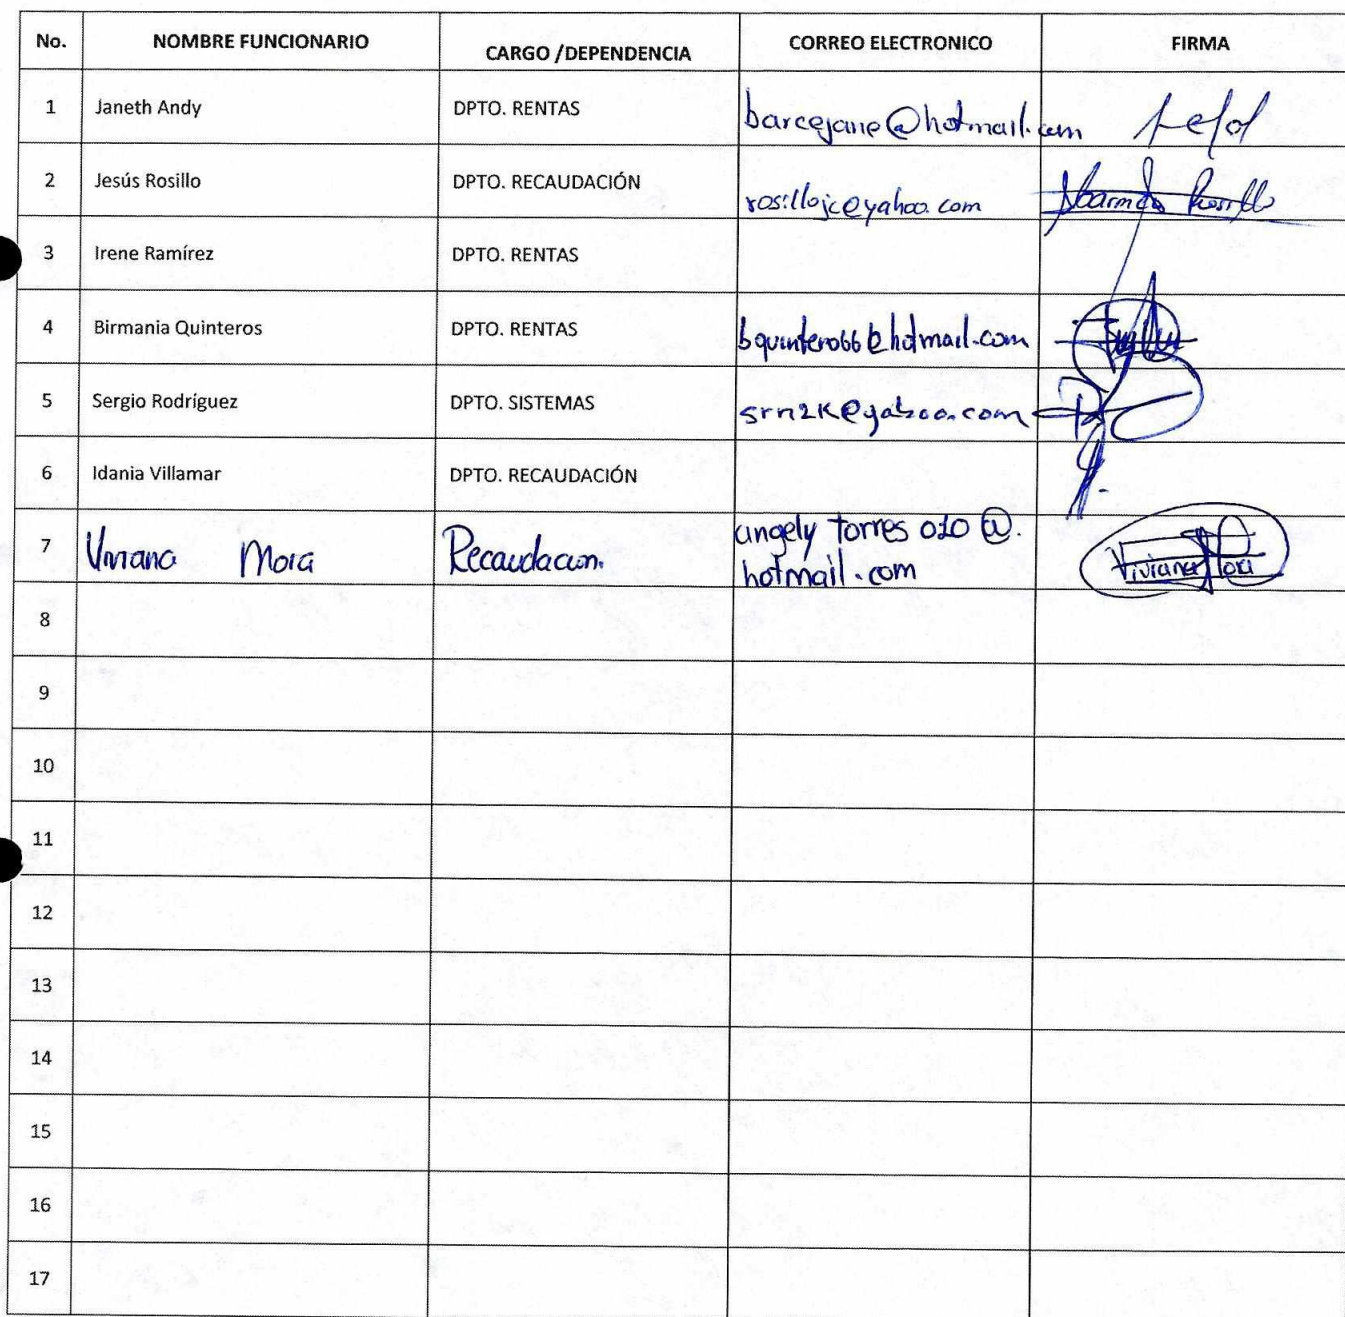 No. NOMBRE FUNCIONARIO CARGO /DEPENDENCIA CORREO ELECTRONICO FIRMA
1 Janeth Andy DPTO. RENTAS barcejane@hotmail.com
2 Jesús Rosillo DPTO. RECAUDACIÓN rosillojc@yahoo.com Rosillo
3 Irene Ramírez DPTO. RENTAS
4 Birmania Quinteros DPTO. RENTAS bquintero66@hotmail.com
5 Sergio Rodríguez DPTO. SISTEMAS srn2k@yahoo.com
6 Idania Villamar DPTO. RECAUDACIÓN
7 Viviana Mora Recaudacion. angely torres 010 @.
hotmail.com Viviana Mora
8
9
10
11
12
13
14
15
16
17